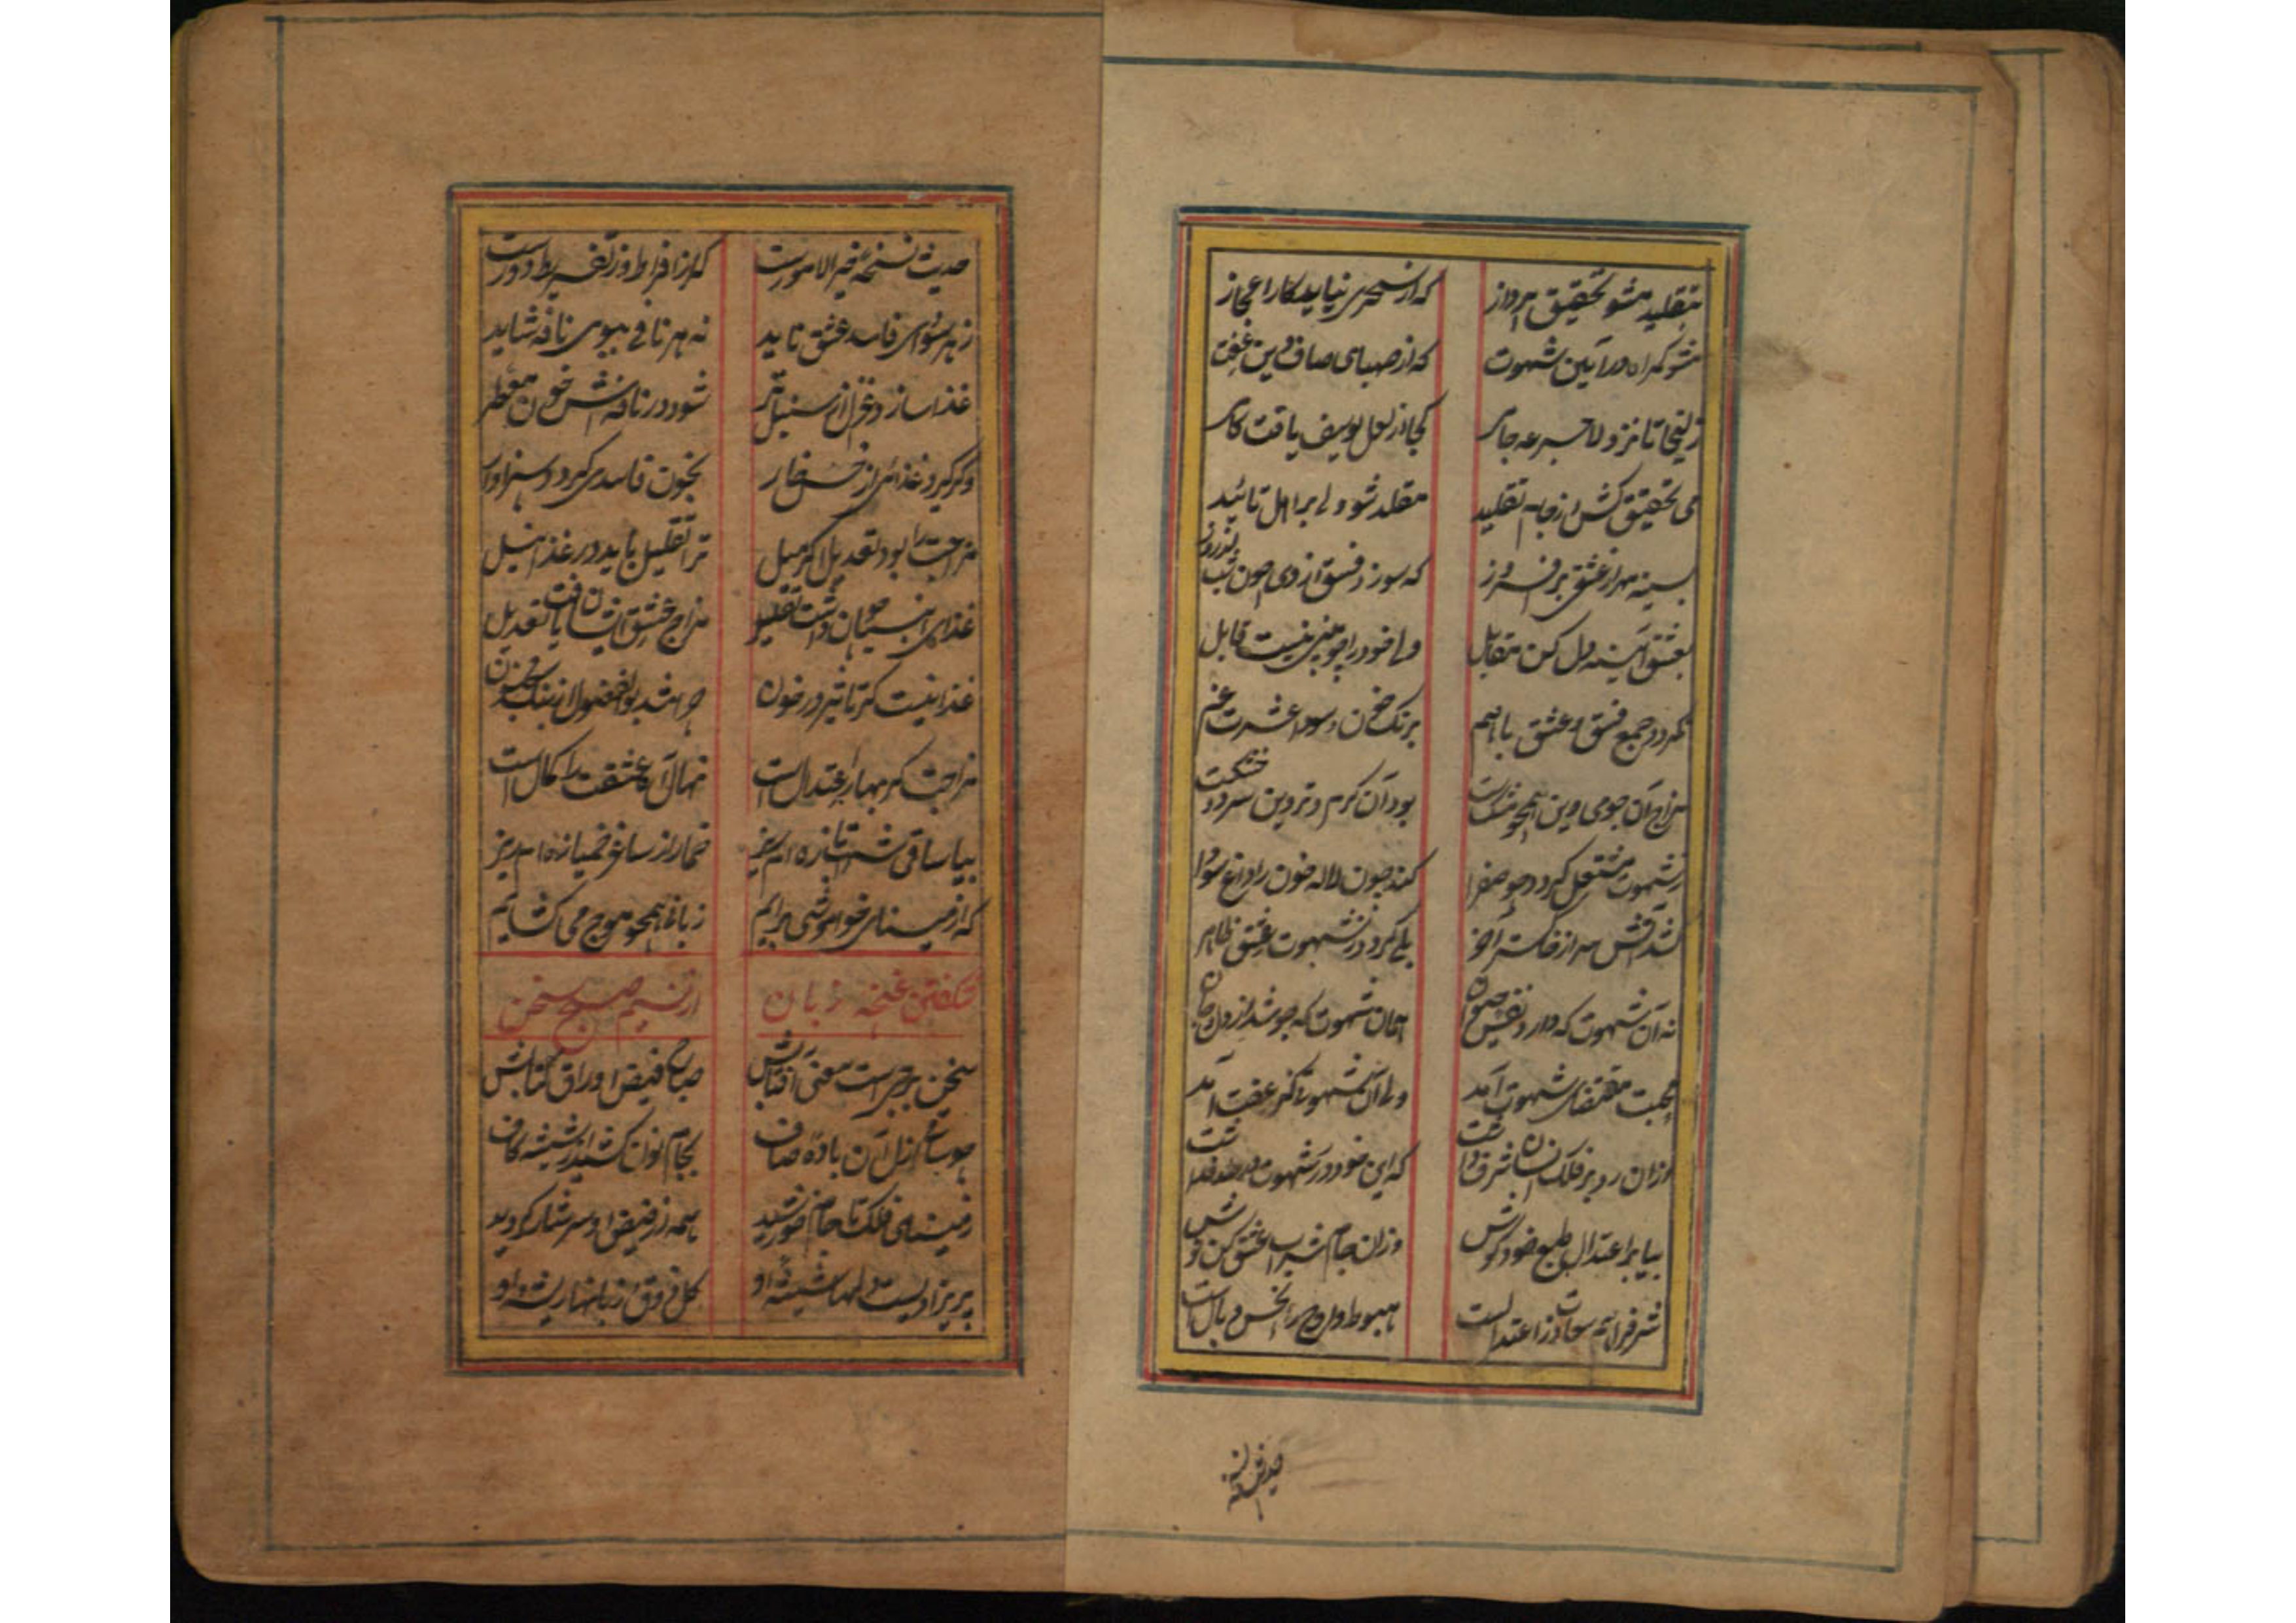 بتقلید مشو تحقیق پرداز که از سحری نیاید کار اعجاز
مشو کمراه در آیین شهوت که از صهبای صاف دین عفت
زلیخا تا نزد لا جرعه جامی کجا از لعل یوسف یافت کامی
می تحقیق کش از جام تقلید مقلد شو ولی بر اهل تائید
بسینه مهر از عشق بر افروز که سوزد فسق از وی چون تب
بعشق آئینه دل کن مقابل ولی خود را چو نیست قابل
نکردد جمع فسق و عشق با هم برنک خون و سودا عشرت و غم
مزاج آن چو می وین همچو مشکست بود آن کرم و تر وین سرد و خشکست
ز شهوت مشتعل کردد چو صفرا کند چون لاله خون را داغ سودا
شد آتش سر از خاکستر آخر بلی کردد ز شهوت عشق ظاهر
نه آن شهوت که دارد نفس همان شهوت که جوشد از دل
محبت مقتضای شهوت آمد ولی آن شهوتی کز عفت آمد
ازان رو بر فلک انسان شرف داشت که این خود در شهوت
بیا بر اعتدال طبع خود کوش وزان جام شراب عشق کن نوش
شرف را سعادت ز اعتدالست هبوط و اوج را نحس و وبالست
حدیث نسخه
حدیث نسخه خیر الامورست که از افراط وز تفریط دورست
ز هر سودای فاسد عشق ناید نه هر نافی ببوی نافه شاید
غذا سازد غزال از سنبل تر شود در نافه اش خون معطر
وکر کیرد غذائی از خس و خار بخون فاسدی کردد سزاوار
مزاجت را بود تعدیل اکر میل ترا تقلیل باید در غذا نیل
غذای داشت تقلیل مزاج عشق ایشان یافت تعدیل
غذا نیست کز تاثیر در خون
مزاجت کر بهار اعتدال است نهال عشقت را کمال است
بیا ساقی شراب تازه ام ریز خمار از ساغر خمیازه ام ریز
که از مینای خواموشی برایم زبان همچو موج می کشایم
شکفتن غنچه زبان از نسیم صبح سخن
سخن برجی است معنی آفتابش صباح فیض اوراق کتابش
چو ساغر ازل آن باده صاف بجام نون کشید از شیشه کاف
ز مینای فلک تا جام خورشید همه ز فیض او سرشار کردید
پریزادیست دلها شیشه او کل ذوق زبانها ریشه او